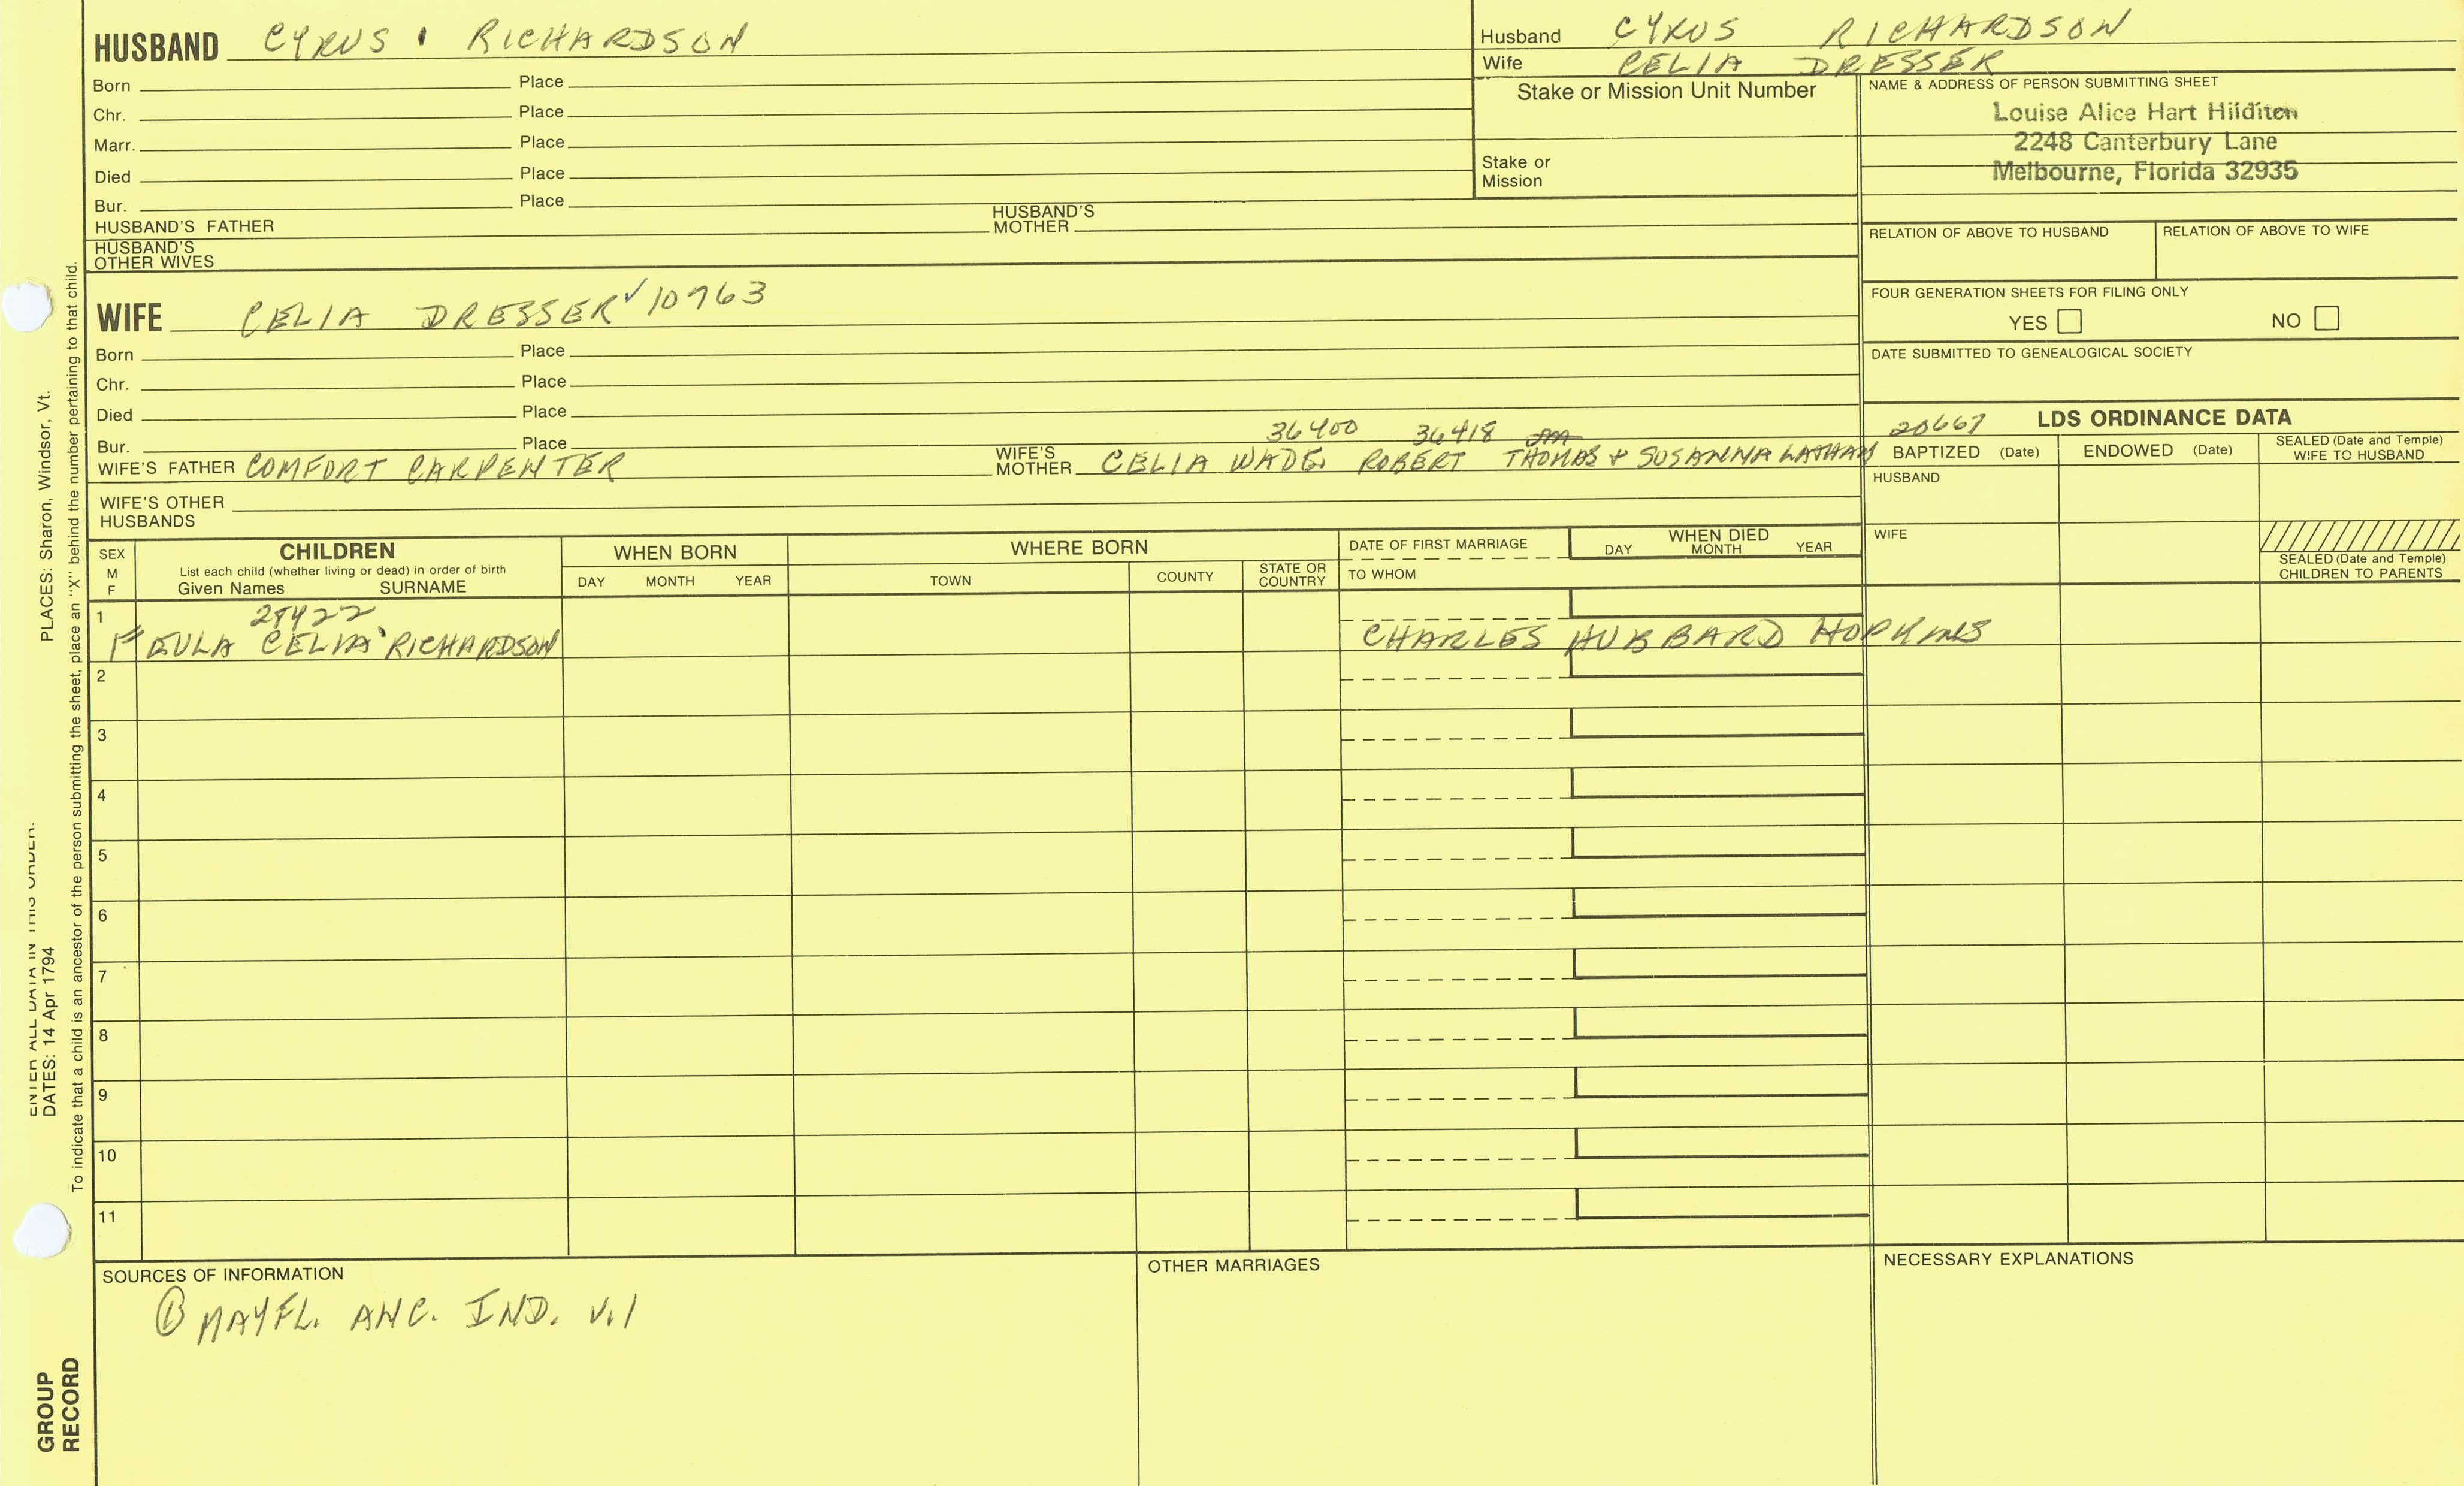 HUSBAND CYRUS RICHARDSON
Born Place
Chr. Place
Marr. Place
Died Place
Bur. Place
HUSBAND'S FATHER HUSBAND'S MOTHER
HUSBAND'S OTHER WIVES
Husband CYRUS RICHARDSON
Wife CELIA DRESSER
Stake or Mission Unit Number
Stake or Mission
NAME & ADDRESS OF PERSON SUBMITTING SHEET
Louise Alice Hart Hilditch
2248 Canterbury Lane
Melbourne, Florida 32935
RELATION OF ABOVE TO HUSBAND RELATION OF ABOVE TO WIFE
FOUR GENERATION SHEETS FOR FILING ONLY
YES NO
DATE SUBMITTED TO GENEALOGICAL SOCIETY
WIFE CELIA DRESSER ✓ 10763
Born Place
Chr. Place
Died Place
Bur. Place
36400 36418
WIFE'S FATHER COMFORT CARPENTER WIFE'S MOTHER CELIA WADE, ROBERT THOMAS + SUSANNA LATHAM
WIFE'S OTHER HUSBANDS
20667 LDS ORDINANCE DATA
BAPTIZED (Date) ENDOWED (Date) SEALED (Date and Temple) WIFE TO HUSBAND
HUSBAND
WIFE
SEALED (Date and Temple) CHILDREN TO PARENTS
SEX M F CHILDREN WHEN BORN WHERE BORN DATE OF FIRST MARRIAGE WHEN DIED
List each child (whether living or dead) in order of birth
Given Names SURNAME DAY MONTH YEAR TOWN COUNTY STATE OR COUNTRY TO WHOM DAY MONTH YEAR
1 28422
F EULA CELIA RICHARDSON CHARLES HUBBARD HOPKINS
2
3
4
5
6
7
8
9
10
11
SOURCES OF INFORMATION OTHER MARRIAGES NECESSARY EXPLANATIONS
① MAYFL. ANC. IND. V.1
ENTER ALL DATA IN THIS ORDER:
DATES: 14 Apr 1794 PLACES: Sharon, Windsor, Vt.
To indicate that a child is an ancestor of the person submitting the sheet, place an "X" behind the number pertaining to that child.
GROUP
RECORD